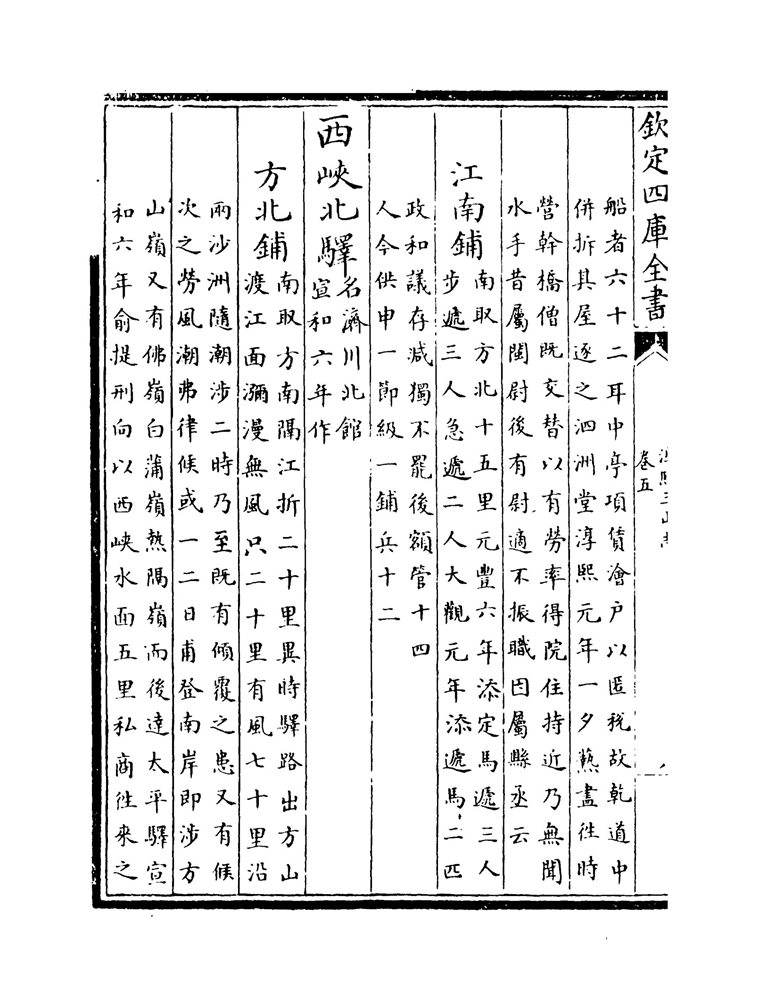 欽定四庫全書
卷五
船者六十二耳中亭項債澮户以匿税故乾道中
併拆其屋逐之泗洲堂淳熙元年一夕爇盡往時
營幹橋僧既交替以有勞率得院住持近乃無聞
水手昔屬閩尉後有尉適不振職因屬縣丞云
江南鋪
南取方北十五里元豐六年添定馬遞三人
步遞三人急遞二人大觀元年添遞馬二匹
政和議存減獨不罷後額管十四
人今供申一節級一鋪兵十二
西峽北驛
名濟川北館
宣和六年作
方北鋪
南取方南隔江折二十里異時驛路出方山
渡江面瀰漫無風只二十里有風七十里沿
兩沙洲隨潮涉二時乃至既有傾覆之患又有候
次之勞風潮弗律候或一二日甫登南岸即涉方
山嶺又有佛嶺白蒲嶺熱隔嶺而後達太平驛宣
和六年俞提刑向以西峽水面五里私商往來之